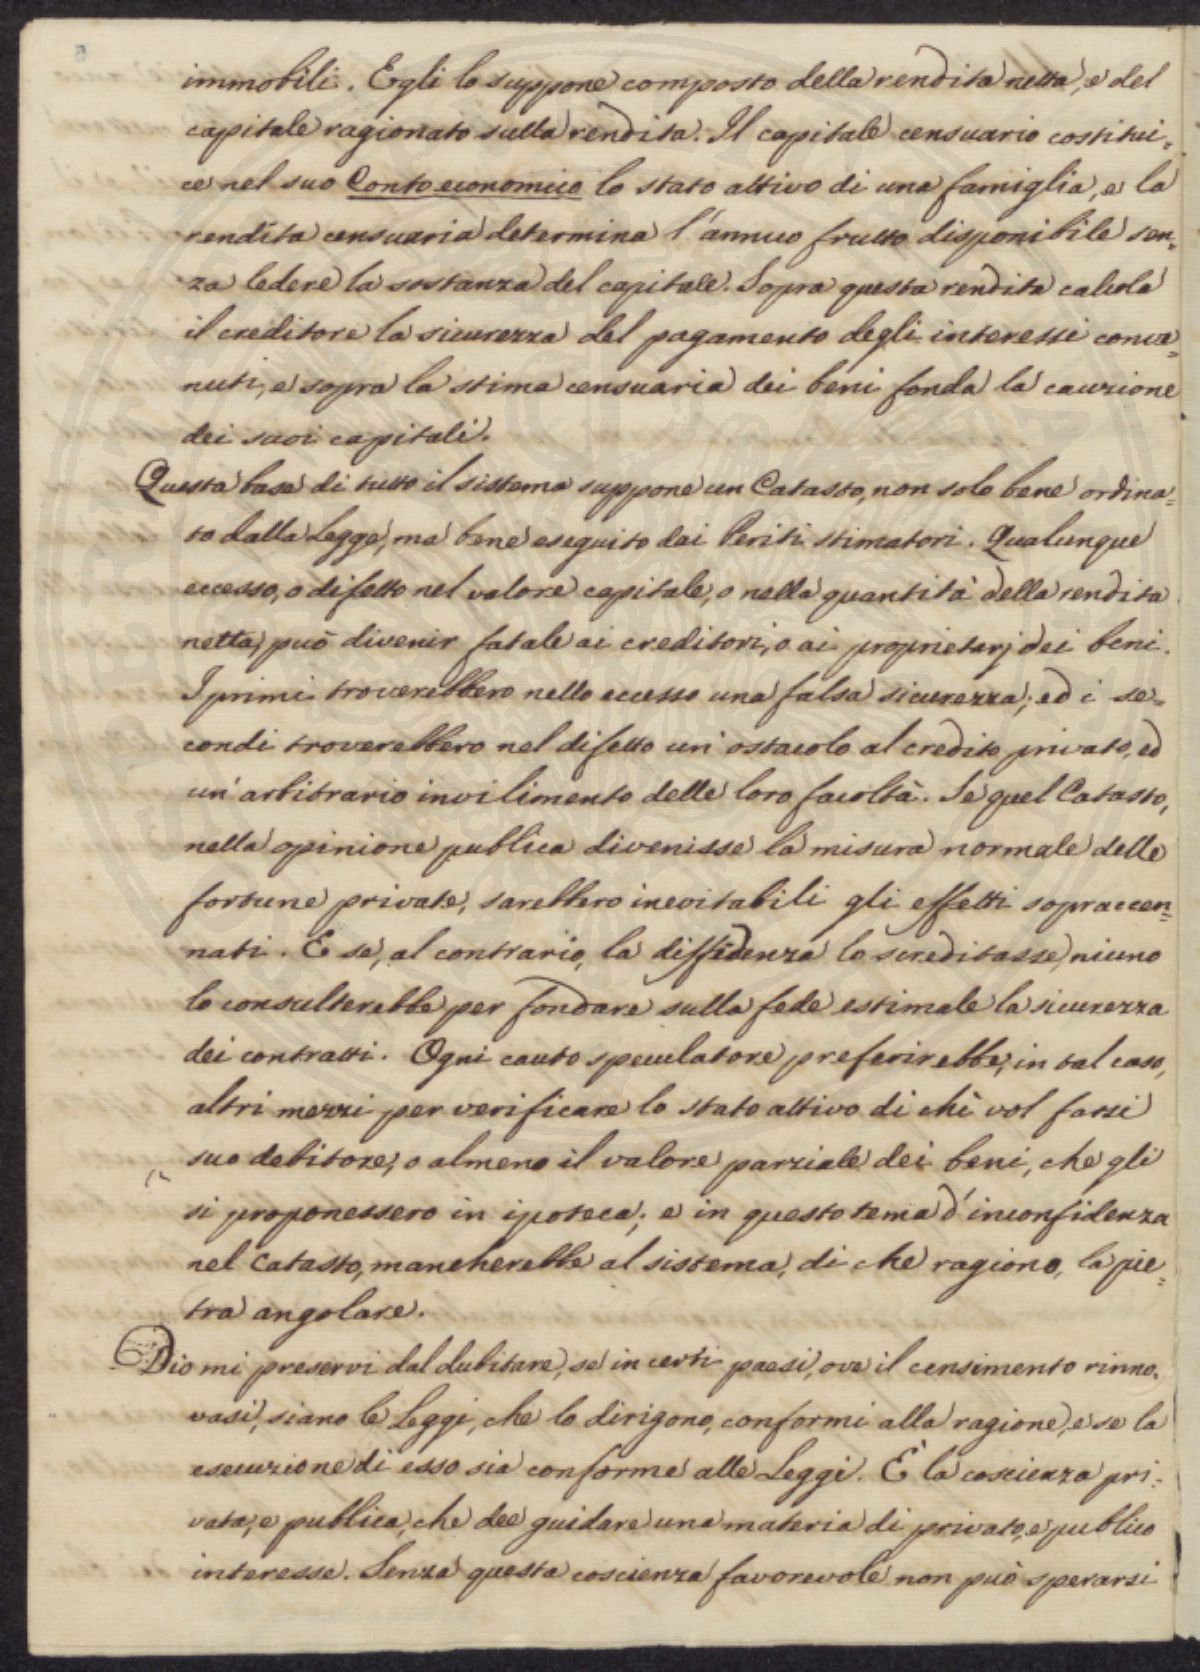 immobili. Egli lo suppone composto della rendita netta, e del
capitale ragionato sulla rendita. Il capitale censuario costitui=
ce nel suo Conto economico lo stato attivo di una famiglia, e la
rendita censuaria determina l'annuo frutto disponibile sen=
za ledere la sostanza del capitale. Sopra questa rendita calcola
il creditore la sicurezza del pagamento degli interessi conve=
nuti, e sopra la stima censuaria dei beni fonda la cauzione
dei suoi capitali.
Questa base di tutto il sistema suppone un Catasto, non solo bene ordina=
to dalla Legge, ma bene eseguito dai Periti stimatori. Qualunque
eccesso, o difetto nel valore capitale, o nella quantità della rendita
netta, può divenir fatale ai creditori, o ai proprietarj dei beni.
I primi troverebbero nello eccesso una falsa sicurezza; ed i se=
condi troverebbero nel difetto un'ostacolo al credito privato, ed
un'arbitrario invilimento delle loro facoltà. Se quel Catasto,
nella opinione publica divenisse la misura normale delle
fortune private, sarebbero inevitabili gli effetti sopraccen=
nati. E se, al contrario, la diffidenza lo screditasse, niuno
lo consulterebbe per fondare sulla fede estimale la sicurezza
dei contratti. Ogni cauto speculatore preferirebbe, in tal caso,
altri mezzi per verificare lo stato attivo di chi vol farsi
suo debitore, o almeno il valore parziale dei beni, che gli
si proponessero in ipoteca; e in questo tema d'inconfidenza
nel Catasto, mancherebbe al sistema, di che ragiono, la pie=
tra angolare.
Dio mi preservi dal dubitare, se in certi paesi, ove il censimento rinno=
vasi, siano le Leggi, che lo dirigono, conformi alla ragione, e se la
esecuzione di esso sia conforme alle Leggi. È la coscienza pri=
vata, e publica, che dee guidare una materia di privato, e publico
interesse. Senza questa coscienza favorevole non può sperarsi